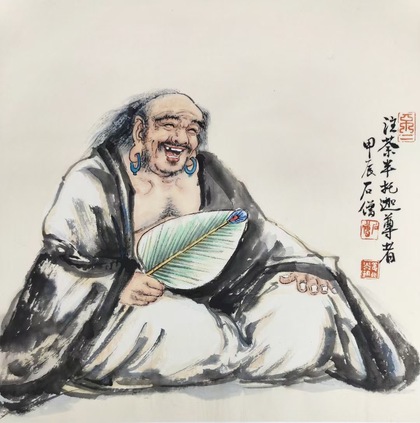 注荼半托迦尊者
甲辰石僧